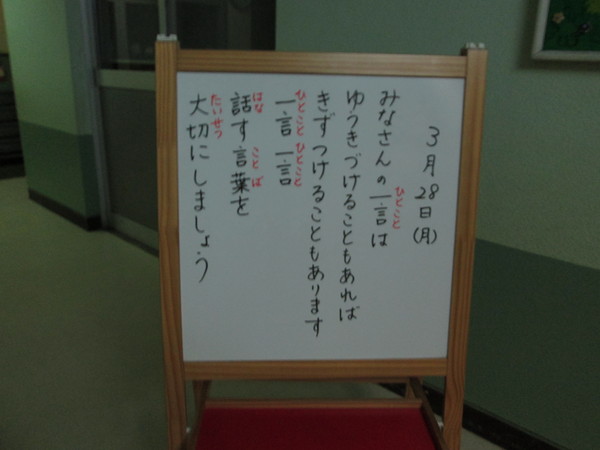 3月28日(月)
みなさんの一言は
ひとこと
ゆうきづけることもあれば
きずつけることもあります
一言一言
ひとこと ひとこと
話す言葉を
はな ことば
大切にしましょう
たいせつ